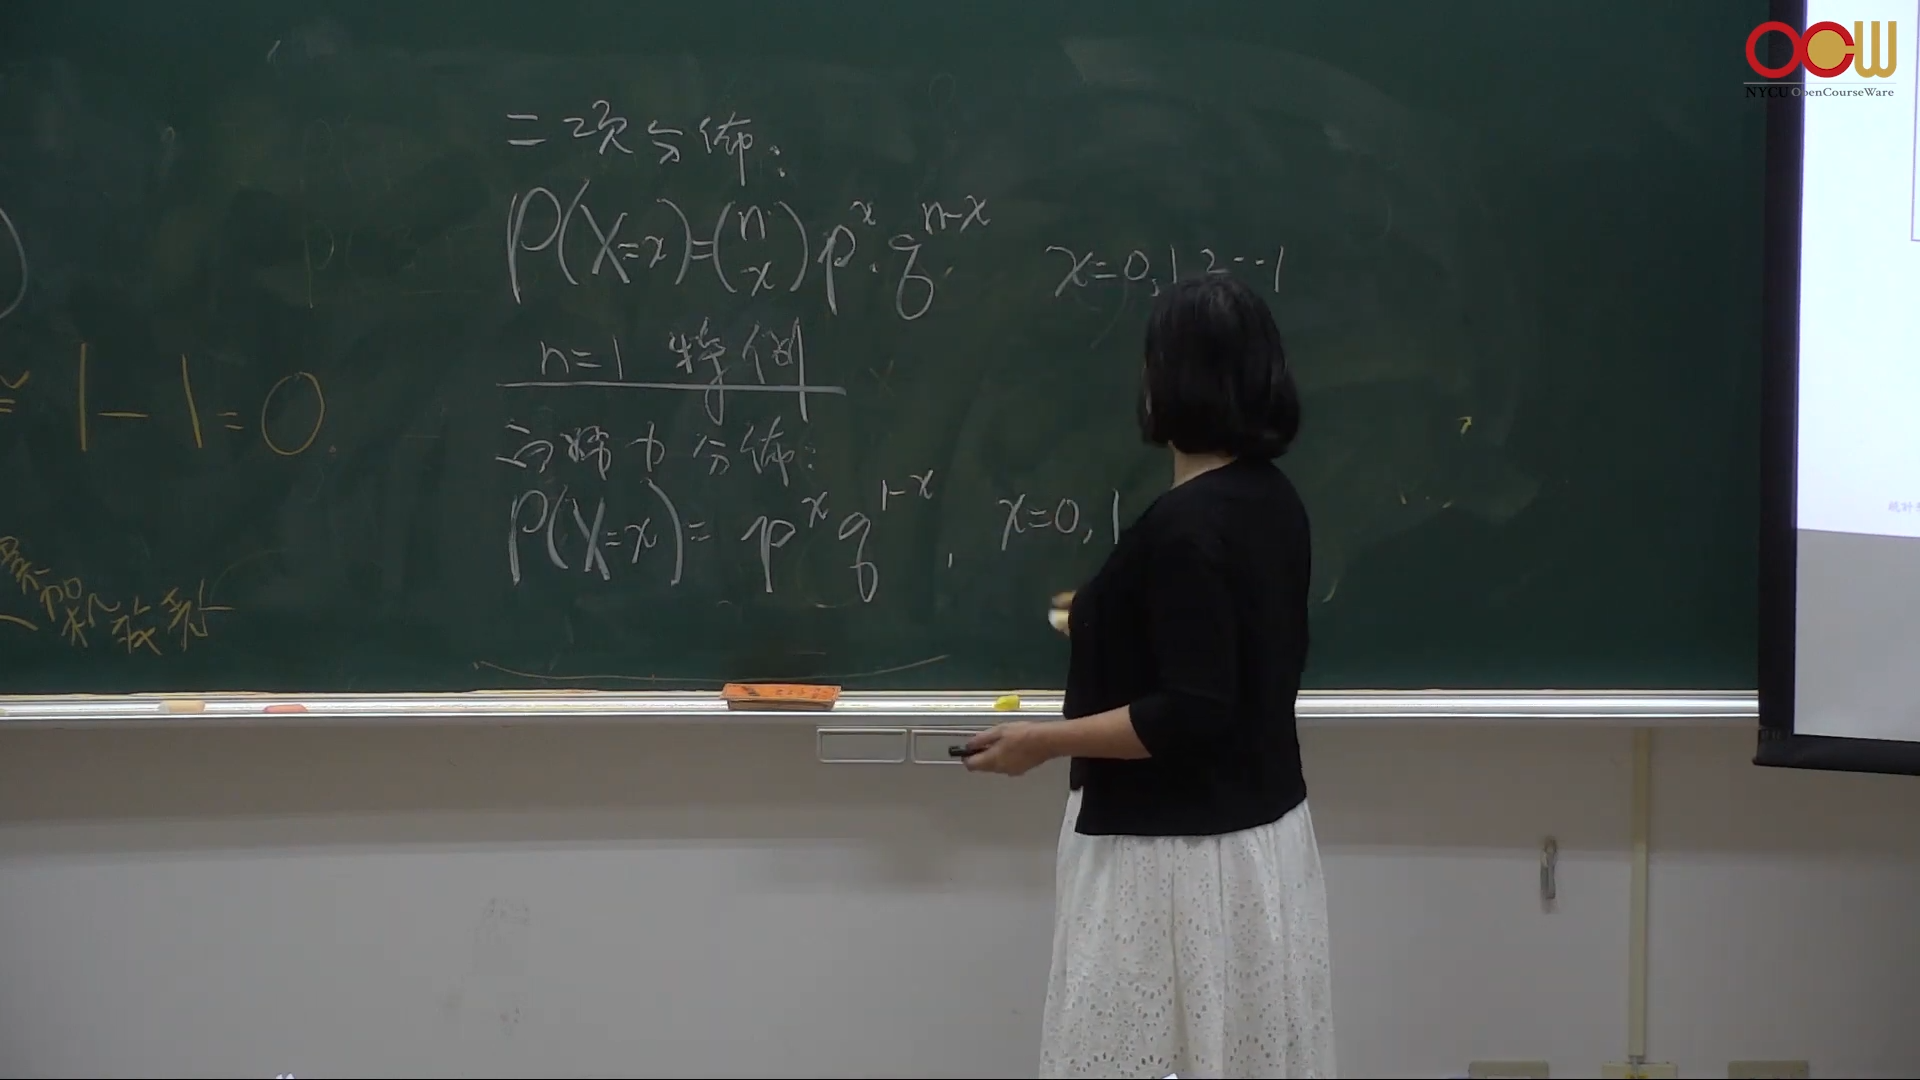 OCW
NYCU OpenCourseWare
二項分佈:
P(X=x)=(n x)p^x·q^{n-x} x=0,1,2…1
n=1 特例
P(X=x)= p^x q^{1-x}, x=0,1
1-1=0